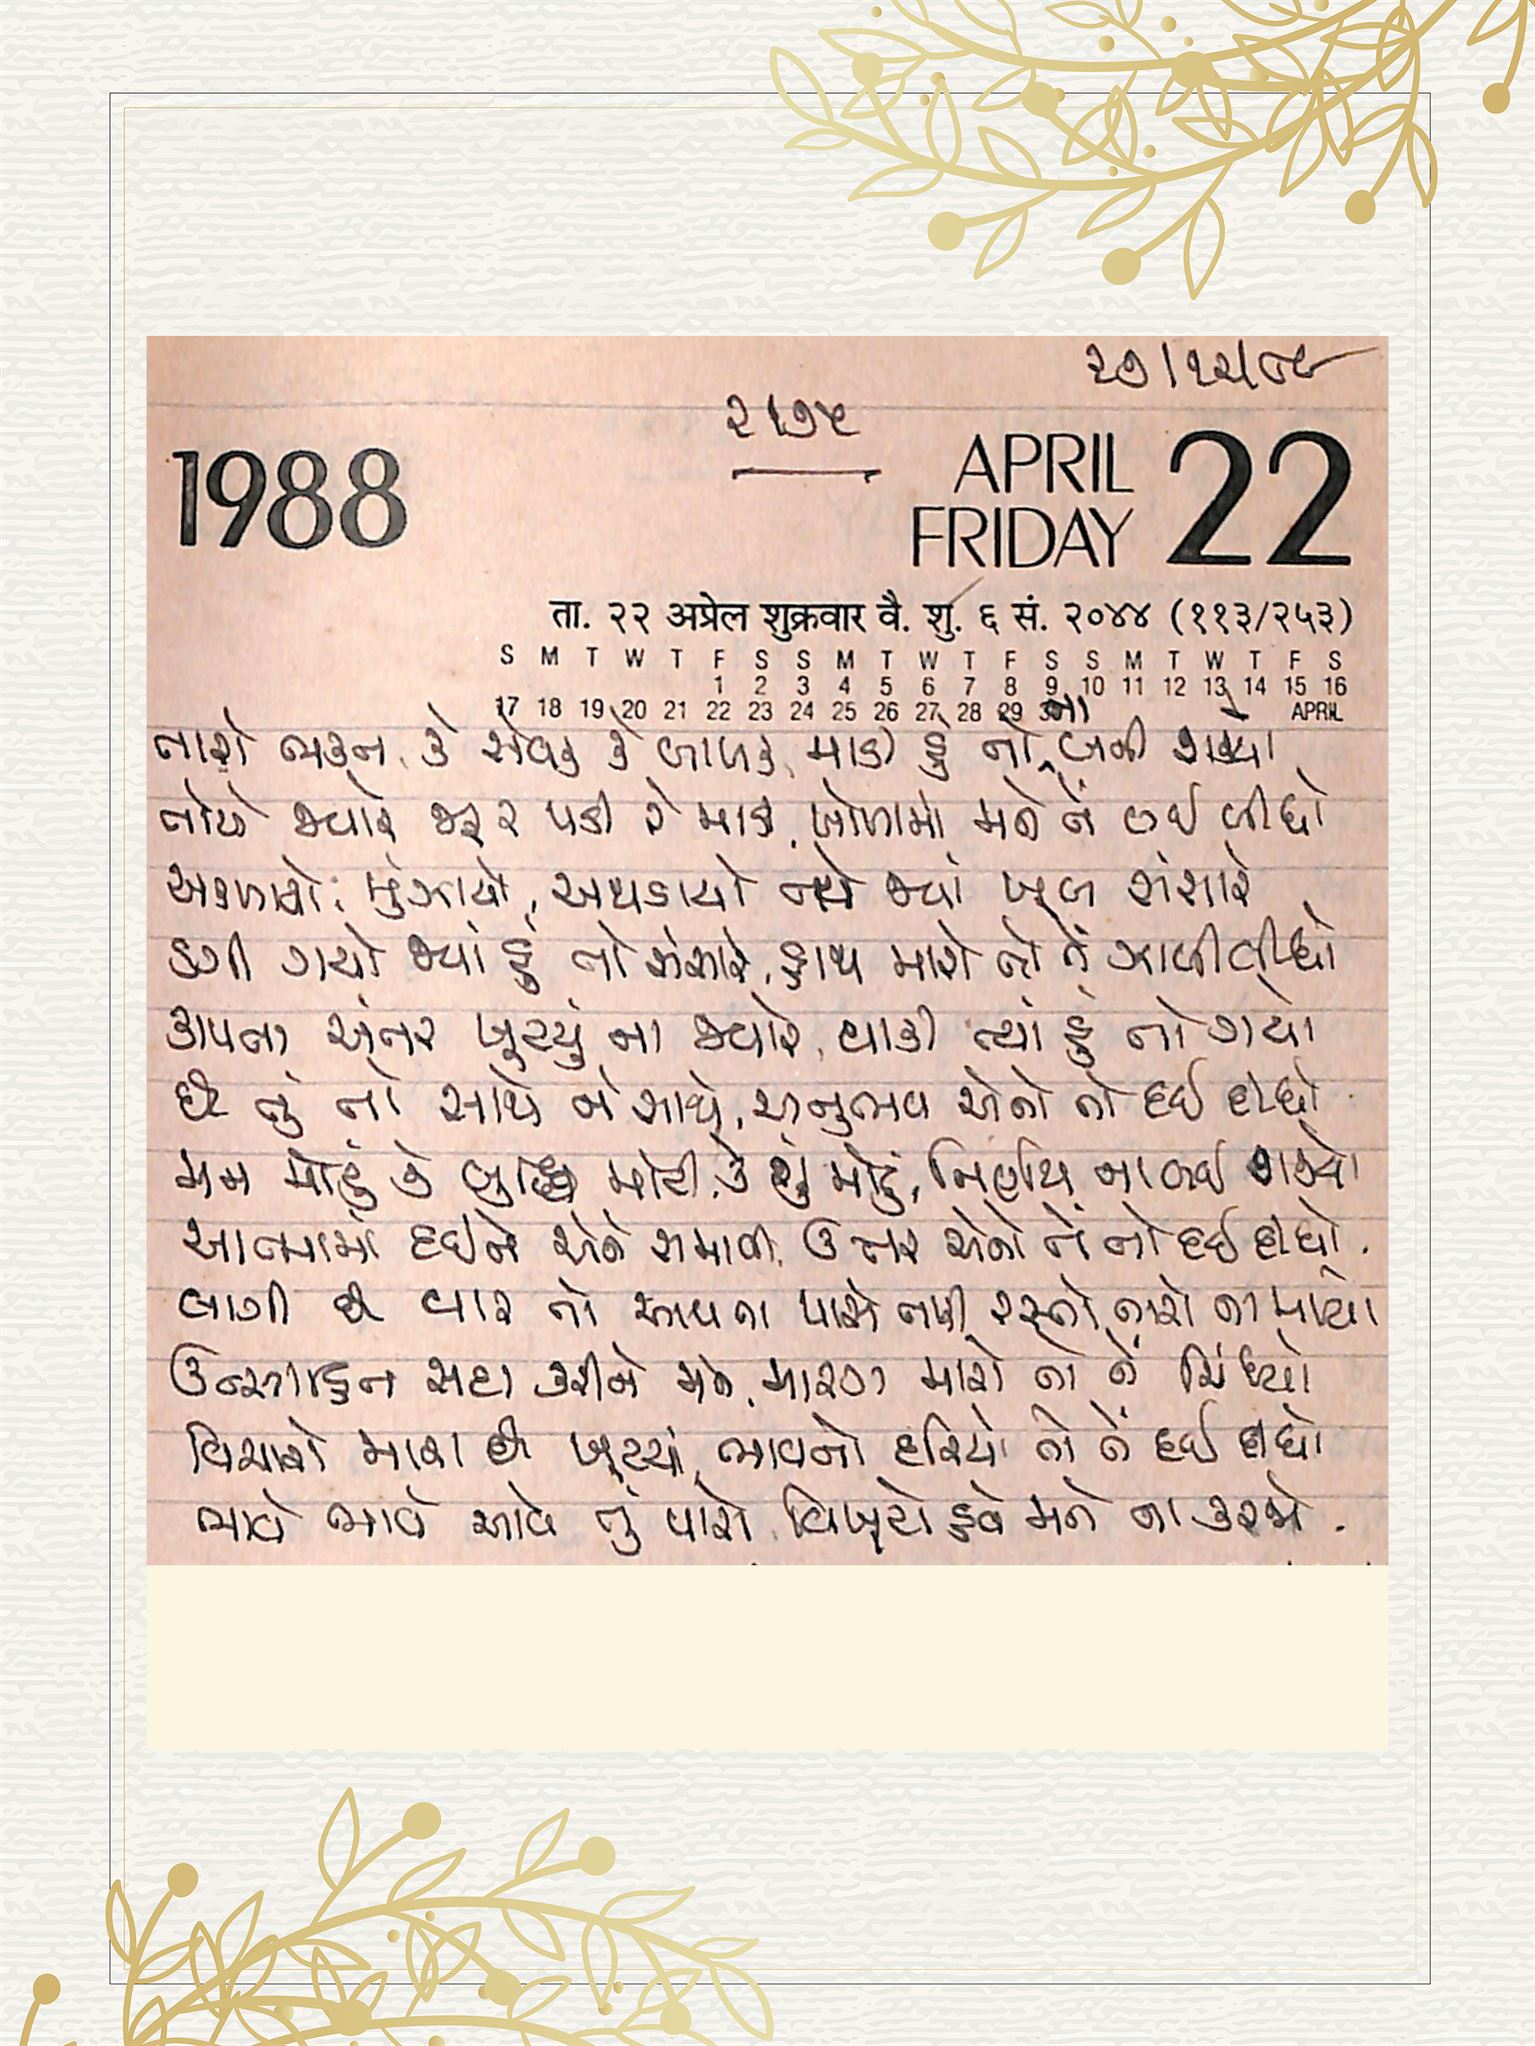 ૨૭/૧૨/૮૯
૨૧૭૫
1988
APRIL 22
FRIDAY
ता. २२ अप्रेल शुक्रवार वै. शु. ६ सं. २०४४ (११३/२५३)
S M T W T F S S M T W T F S S M T W T F S
1 2 3 4 5 6 7 8 9 10 11 12 13 14 15 16
17 18 19 20 21 22 23 24 25 26 27 28 29 30 APRIL
તારો ભક્ત કે સેવક કે બાળક, માડી હું તો ના બની શક્યો
તોયે જ્યારે જરૂર પડી રે માડી, ખોળામાં મને તેં લઈ લીધો
અકળાયો, મુંઝાયો, અથડાયો જ્યાં ખૂબ સંસારે
ડગી ગયો જ્યાં હું તો સંસારે, હાથ મારો તો તેં ઝાલી લીધો
આપતા અંતર ખૂટયું ના જ્યારે, થાકી ત્યાં હું તો ગયો
છે તું તો સાથે ને સાથે, અનુભવ એનો તો દઈ દીધો
મન મોટું કે બુદ્ધિ મોટી, કે શું મોટું, નિર્ણય ના લઈ શક્યો
આત્મામાં દઈને એને સમાવી, ઉત્તર એનો તેં તો દઈ દીધો.
લાગી છે વાર તો આવતા પાસે તારી, રસ્તો તારો ના પામ્યો
ઉત્સાહિત સદા કરીને મને, મારગ મારો તો તેં ચિંધ્યો
વિચારો મારા છે ખૂટયાં, ભાવનો દરિયો તો તેં દઈ દીધો
ભાવે ભાવે આવે તું પાસે, વિખૂટો હવે મને ના કરજે.